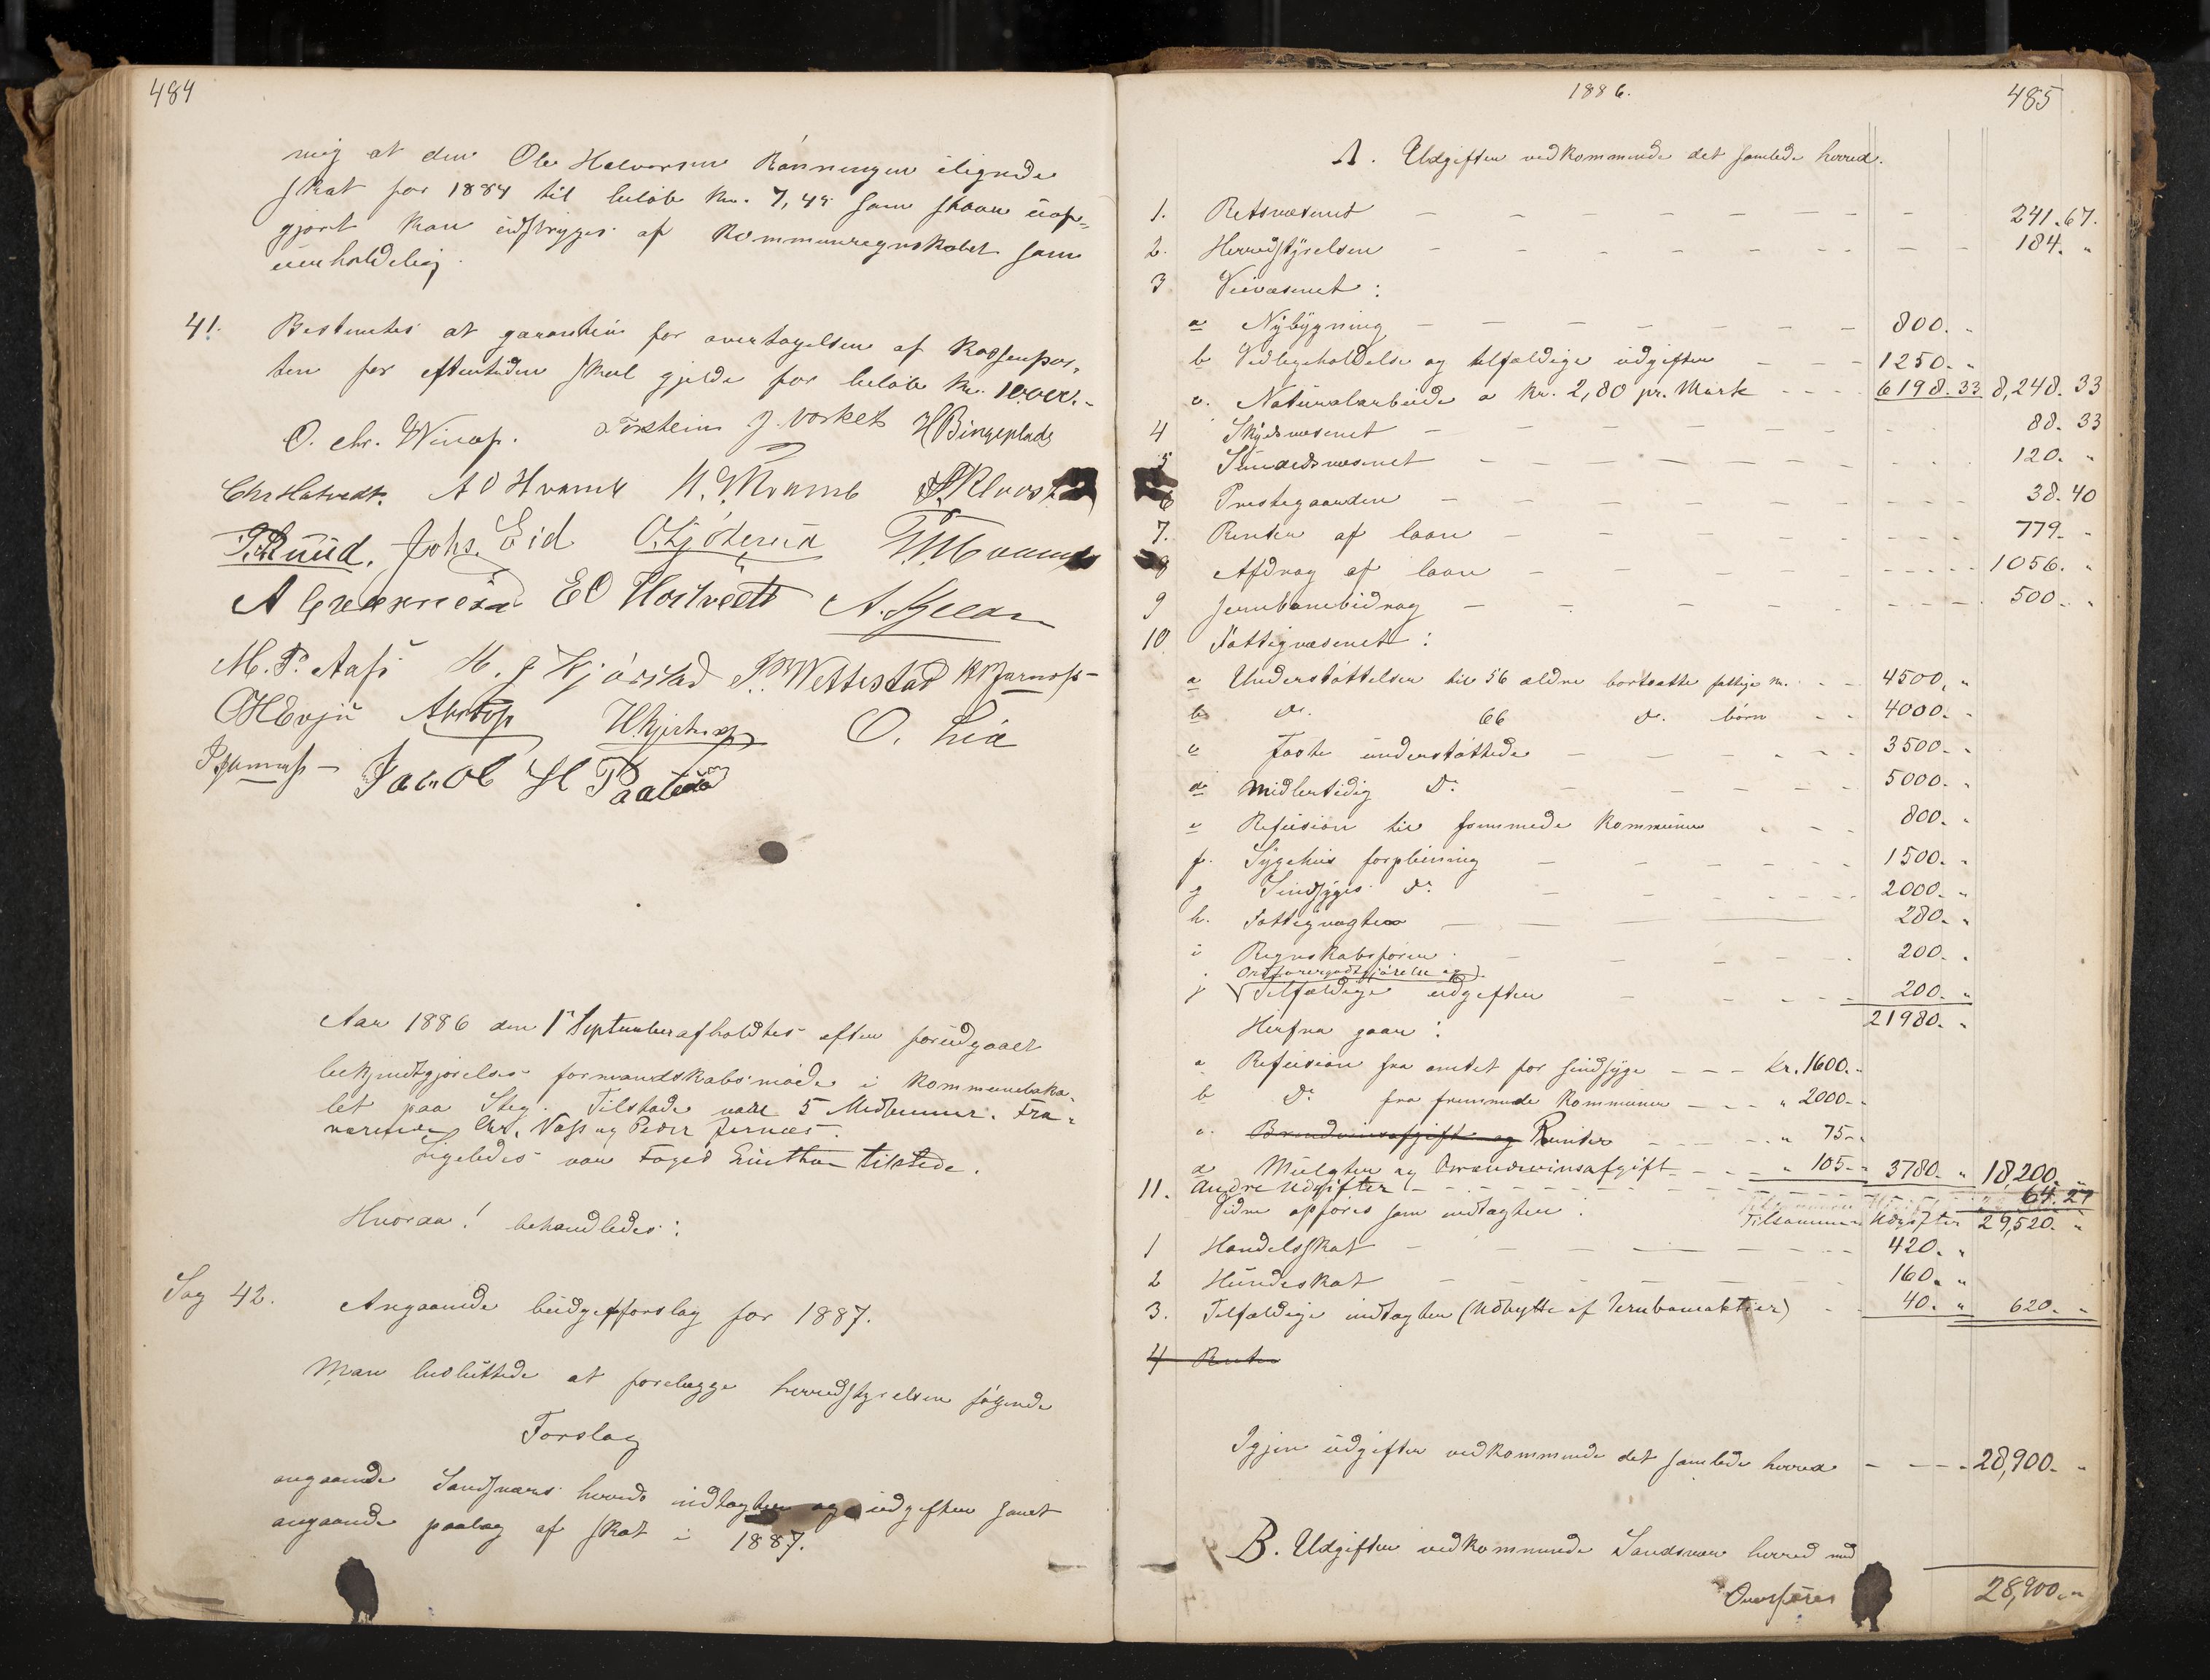 484
mig at den Ole Halvorsen Rønningen ilignede
skat for 1884 til beløb kr. 7,49 som staar uop=
gjort kan udstryges af kommuneregnskabet som
uerholdelig.
41. Bestemtes at garantien for overtagelsen af
for eftertiden skal gjelde for beløb kr.
O. Chr. Winap. Torstein J. Vorket H Bingeplads
Chr Hatvedt. A O Hvamb
T. Ruud. Johs. Eid
E O Hostvedt
M. P. Aass H. J. Kjørstad P. Wettestad
O H Evju O. Lia
Jacob H
Aar 1886 den 1ste September afholdtes efter forudgaaet
bekjendtgjørelse formandskabsmøde i kommuneloka-
let paa Steg. Tilstede vare 5 Medlemmer. Fra-
værende Chr. Vass og Peder Jernæs.
Ligeledes var Foged tilstede.
Hvoraa! behandledes:
Sag 42. Angaaende budgetforslag for 1887.
Man besluttede at forelægge herredstyrelsen følgende
Forslag
angaaende Sandsværs herreds indtægter og udgifter samt
angaaende paalæg af skat i 1887.
1886.
485
A. Udgifter vedkommende det samlede herred.
1. Retsvæsenet 241.67.
2. Herredstyrelsen 184. "
3 Veivæsenet:
a Nybygning 800. "
b Vedligeholdelse og tilfældige udgifter 1250. "
c. Naturalarbeide a kr. 2,80 pr. Mark 6198.33 8,248.33
4 Skydsvæsenet 88.33
5 Sundedsvæsenet 120. "
6 Prestegaarden 38.40
7. Renter af laan 779. "
8 Afdrag af laan 1056. "
9 Jernbanebidrag 500. "
10. Fattigvæsenet:
a Understøttelser til 56 ældre bortsatte fattige kr. 4500. "
b Do. 66 do. børn 4000. "
c Faste understøttede 3500. "
d Midlertidig Do. 5000. "
e Refusion til fremmede kommuner 800. "
f. Sygehus forpleining 1500. "
g Sindsyges do. 2000. "
h. Fattigvogter 280. "
i Regnskabsfører 200. "
Ordførergodtgjørelse og
j Tilfældige udgifter 200. "
21980. "
Herfra gaar:
a Refusion fra amtet for sindsyge kr. 1600. "
b Do. fra fremmede kommuner " 2000. "
c. Brændevinsafgift og Renter " 75. "
d Mulgter og Brændevinsafgift " 105. " 3780. " 18,200. "
11. Andre Udgifter 64.27
Videre opføres som indtægter: Tilsammen Udgifter 29,520. "
1 Handelsskat 420. "
2 Hundeskat 160. "
3. Tilfældige indtægter (Udbytte af Jernbaneaktier) 40. " 620. "
4 Renter
Igjen udgifter vedkommende det samlede herred 28,900. "
B. Udgifter vedkommende Sandsvær herred med
Overføres 28,900. "